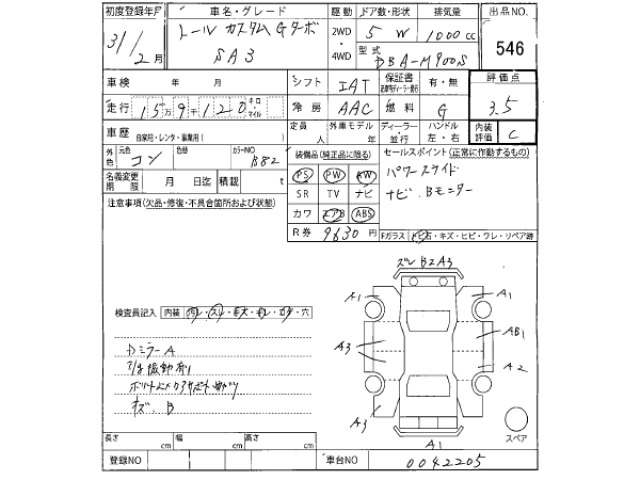 初度登録年月 車名・グレード 駆動 ドア数・形状 排気量 出品NO.
31/2月 トール カスタム Gターボ SA3 2WD・4WD 5 W 1000cc 546
型式 DBA-M900S
車検 年 月 シフト IAT 保証書 有・無 評価点 3.5
走行 15万9千120 キロ・マイル 冷房 AAC 燃料 G
車歴 自家用・レンタ・事業用( ) 定員 人 外車モデル 年 ディーラー・並行 ハンドル 左・右 内装評価 C
外色 元色 コン 色替 カラーNO B82 装備品(純正品に限る) セールスポイント(正常に作動するもの)
名義変更期限 月 日迄 積載 t PS PW AW パワースライド
SR TV ナビ ナビ、Bモニター
注意事項(欠品・修復・不具合箇所および状態) カワ エアB ABS
R券 9630円 Fガラス トビ石・キズ・ヒビ・ワレ・リペア跡
ズレ B2A3
A1 A1
検査員記入 内装 汚レ・スレ・キズ・キレ・コゲ・穴
AB1
A3
A2
DミラーA
キズ、B
A3
A1
スペア
長さ cm 幅 cm 高さ cm
登録NO 車台NO 0042205